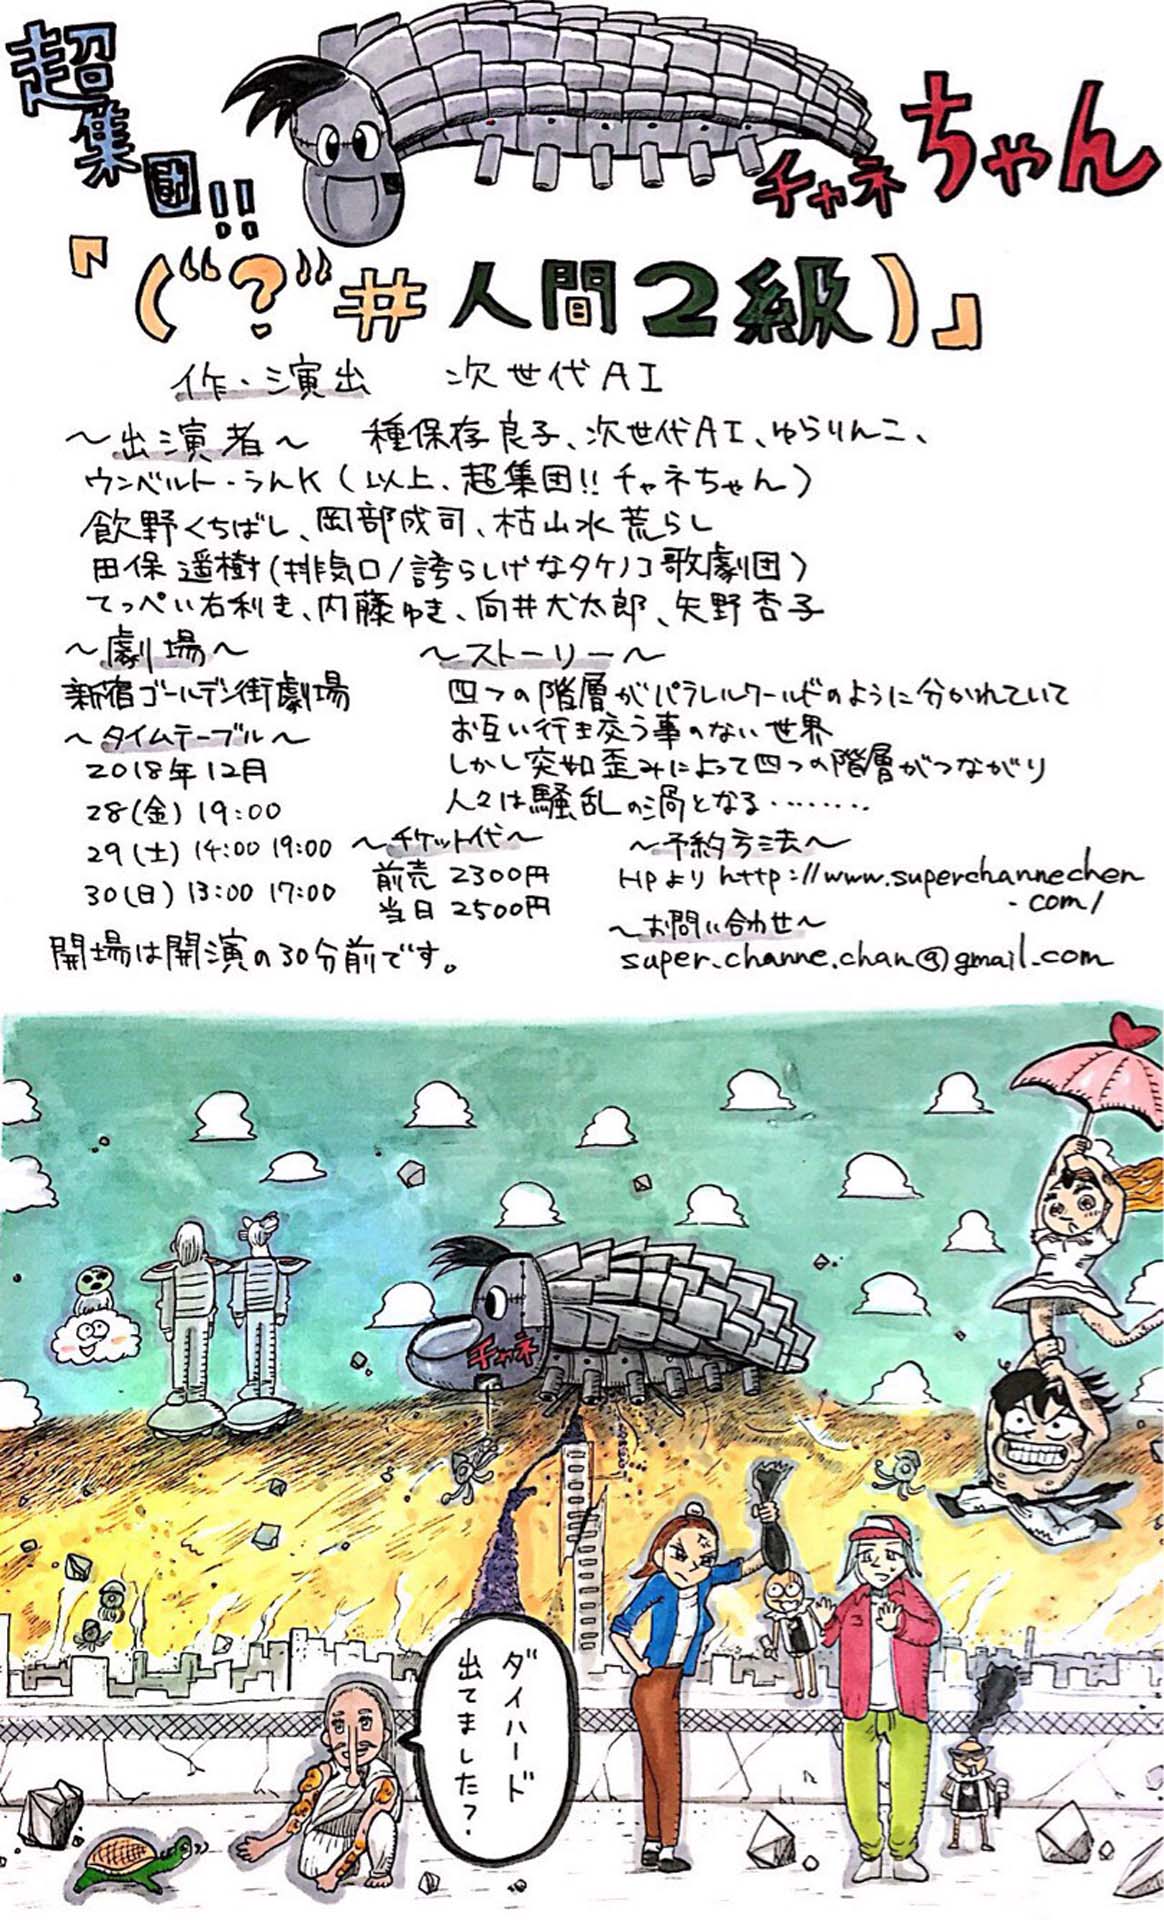 超集団!!
チャネちゃん
『(“?”#人間2級)』
作・演出 次世代AI
~出演者~ 種保存良子、次世代AI、ゆらりんこ、
ウンベルト・うんK(以上、超集団!!チャネちゃん)
飲野くちばし、岡部成司、枯山水荒らし
田保遥樹(排気口/誇らしげなタケノコ歌劇団)
てっぺい右利き、内藤ゆき、向井犬太郎、矢野杏子
~劇場~
新宿ゴールデン街劇場
~タイムテーブル~
2018年12月
28(金) 19:00
29(土) 14:00 19:00
30(日) 13:00 17:00
開場は開演の30分前です。
~ストーリー~
四つの階層がパラレルワールドのように分かれていて
お互い行き交う事のない世界
しかし突如歪みによって四つの階層がつながり
人々は騒乱の渦となる········
~チケット代~
前売 2300円
当日 2500円
~予約方法~
HPより http://www.superchannechen
.com/
~お問い合わせ~
super.channe.chan@gmail.com
チャネ
ダイハード
出てました?